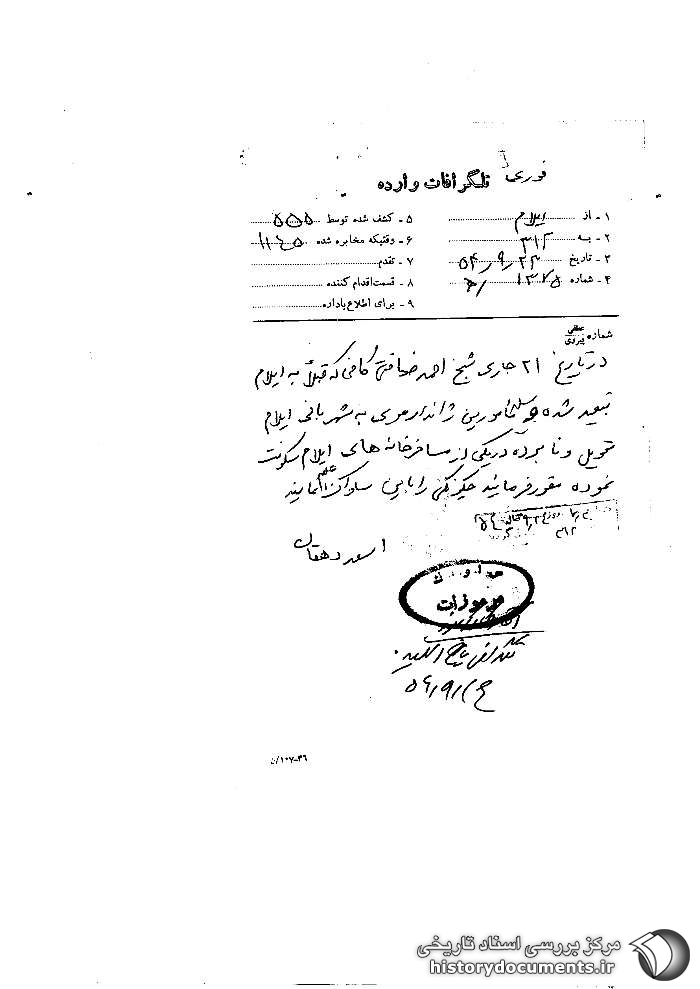 فوری
تلگرافات وارده
۱ - از ایلام
۲ - به ۳۱۲
۳ - تاریخ ۵۴/۹/۲۳
۴ - شماره ۱۳۷۵
۵ - کشف شده توسط ۵۵۵
۶ - وقتیکه مخابره شده ۱۱۴۵
۷ - تقدم
۸ - قسمت اقدام کننده
۹ - برای اطلاع باداره
شماره عطفی پیروی
در تاریخ ۲۱ جاری شیخ احمد کافی که قبلاً به ایلام
تبعید شده وسیله مامورین ژاندارمری به شهربانی ایلام
تحویل و نامبرده در یکی از مسافرخانه های ایلام سکونت
نموده مقرر فرمایند را باین ساواک اعلام نمایند
مرموزات
۵۴/۹/
۱۰۷-۳۶/ن
مرکز بررسی اسناد تاریخی
historydocuments.ir